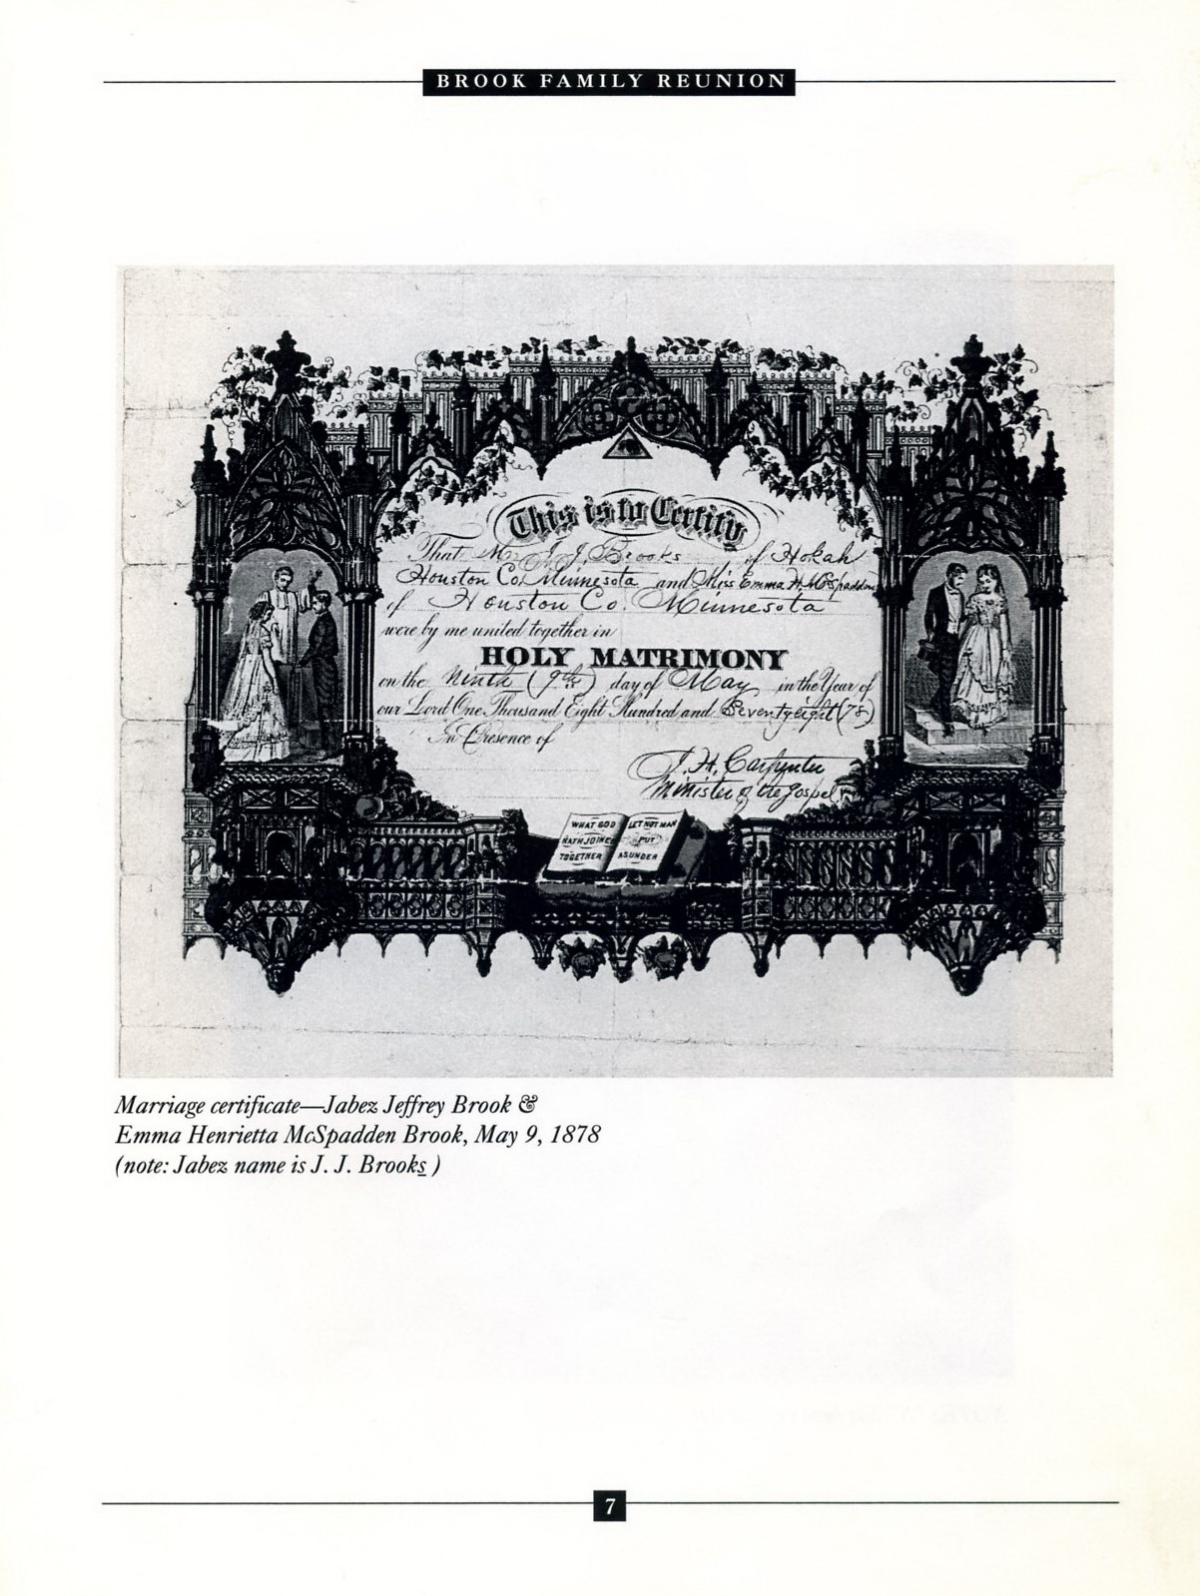 BROOK FAMILY REUNION
This is to Certify
That Mr. J. J. Brooks of Hokah
Houston Co. Minnesota and Miss Emma H. McSpadden
of Houston Co. Minnesota
were by me united together in
HOLY MATRIMONY
on the Ninth (9th) day of May in the Year of
our Lord One Thousand Eight Hundred and Seventyeight (78)
In Presence of
J. H. Carpenter
Minister of the Gospel
WHAT GOD
HATH JOINED
TOGETHER
LET NOT MAN
PUT
ASUNDER
Marriage certificate—Jabez Jeffrey Brook &
Emma Henrietta McSpadden Brook, May 9, 1878
(note: Jabez name is J. J. Brooks )
7